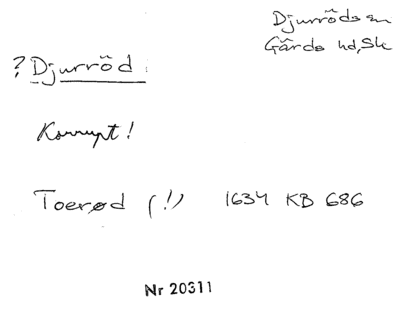 Djurröds sn
Gärds hd, Sk
? Djurröd
Korrupt!
Toerød (!) 1634 KB 686
Nr 20311